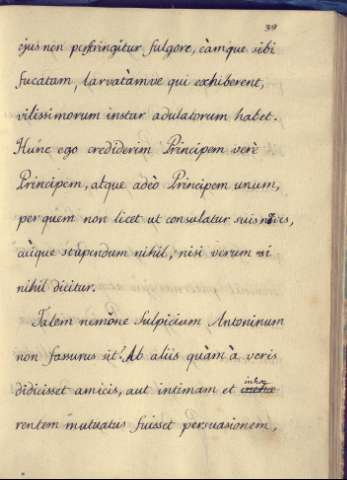 39
ejus non perstringitur fulgore, eàmque sibi
fucatam, larvatàmve qui exhiberent,
vilissimorum instar adulatorum habet.
Hunc ego crediderim Principem verè
Principem, atque adeò Principem unum,
per quem non licet ut consulatur suis
cuique stupendum nihil, nisi verum si
nihil dicitur.
Talem nemòne Sulpicium Antoninum
non fassurus sit? Ab aliis quàm à veris
didicisset amicis, aut intimam et inhæ
rentem mutuatus fuisset persuasionem,